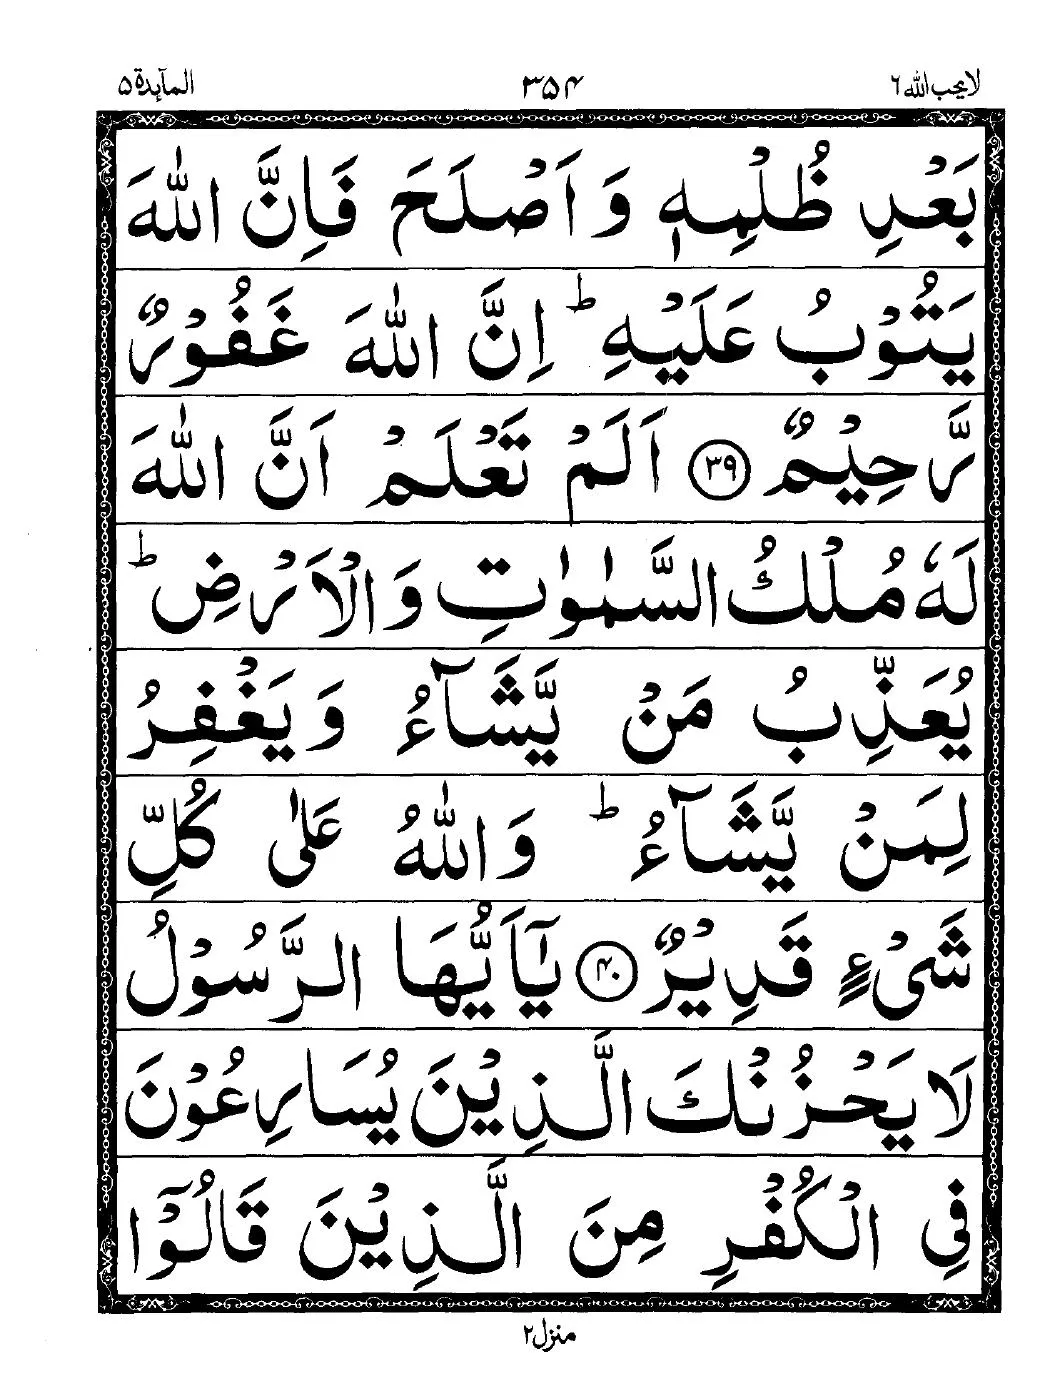 لا یحب الله ۶ ۳۵۴ المآىِٕدة ۵
بَعْدِ ظُلْمِهٖ وَ اَصْلَحَ فَاِنَّ اللّٰهَ
یَتُوْبُ عَلَیْهِ ؕ اِنَّ اللّٰهَ غَفُوْرٌ
رَّحِیْمٌ ۳۹ اَلَمْ تَعْلَمْ اَنَّ اللّٰهَ
لَهٗ مُلْكُ السَّمٰوٰتِ وَ الْاَرْضِ ؕ
یُعَذِّبُ مَنْ یَّشَآءُ وَ یَغْفِرُ
لِمَنْ یَّشَآءُ ؕ وَ اللّٰهُ عَلٰی كُلِّ
شَیْءٍ قَدِیْرٌ ۴۰ یٰۤاَیُّهَا الرَّسُوْلُ
لَا یَحْزُنْكَ الَّذِیْنَ یُسَارِعُوْنَ
فِی الْكُفْرِ مِنَ الَّذِیْنَ قَالُوْۤا
منزل ۲